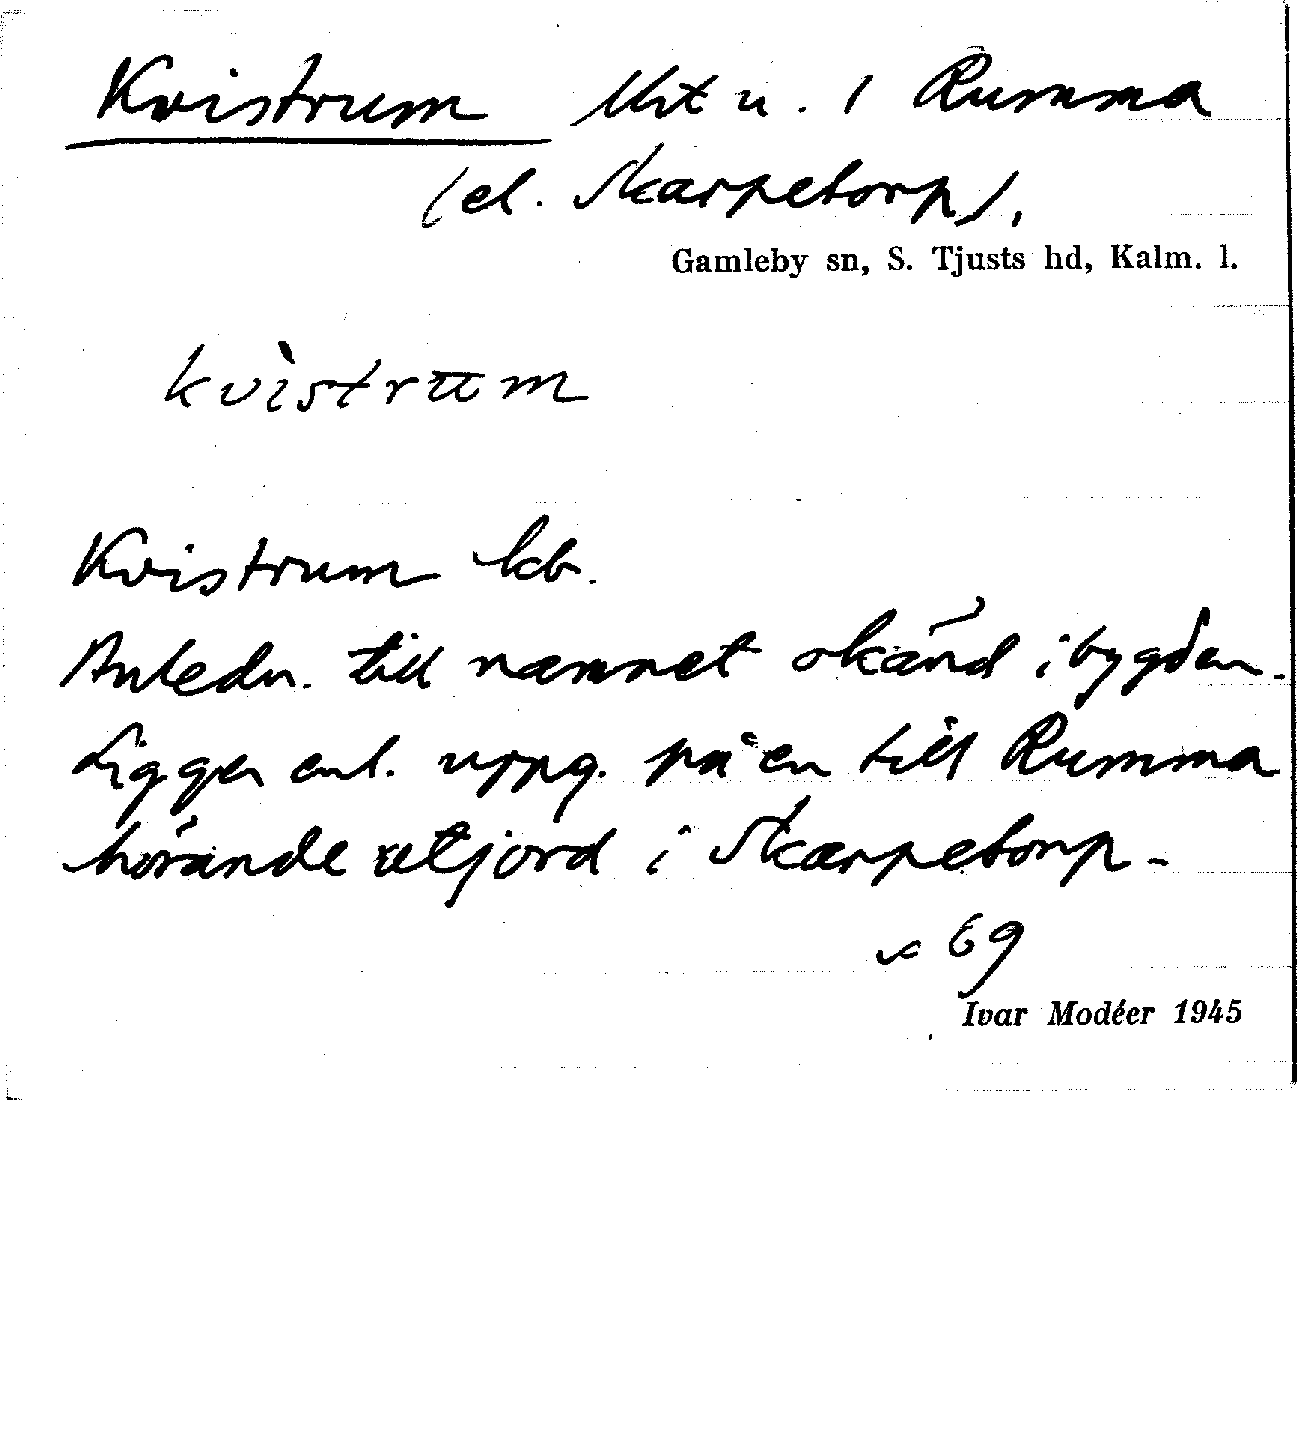 Kvistrum lht u. 1 Rumma
(el. Skarpetorp),
Gamleby sn, S. Tjusts hd, Kalm. l.
kvìstrum
Kvistrum kb.
Anledn. till namnet okänd i bygden.
Ligger enl. uppg. på en till Rumma
hörande utjord i Skarpetorp.
69
Ivar Modéer 1945